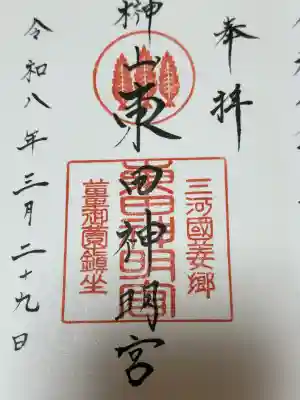 奉拝
榊山東田神明宮
三河國美郷
東田神明宮
薑御園鎮坐
令和八年三月二十九日